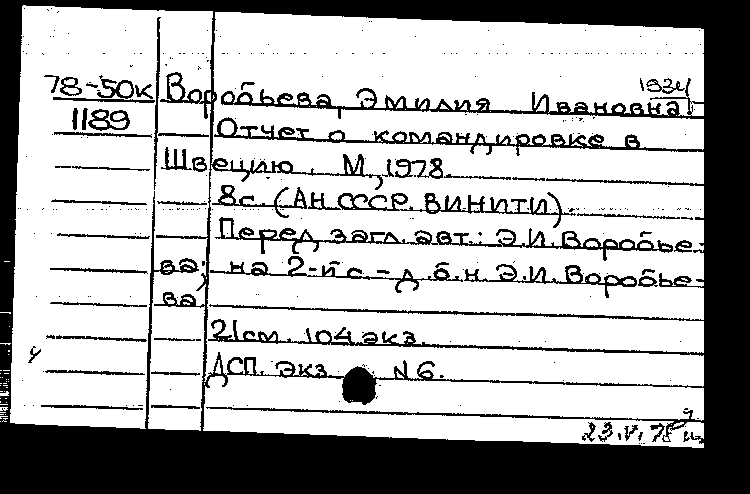 1934
78-50к Воробьева, Эмилия Ивановна
1189 Отчет о командировке в
Швецию. М., 1978.
8с. (АН СССР. ВИНИТИ).
Перед загл. авт.: Э.И. Воробье-
ва; на 2-й с. - д.б.н. Э.И. Воробье-
ва
21см. 104 экз.
ДСП. Экз. N 6.
23.V.78